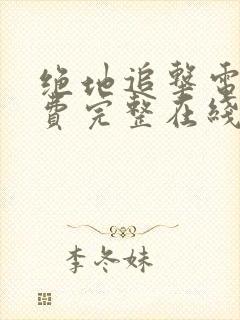 绝地追击電
費完整在綫
李冬妹